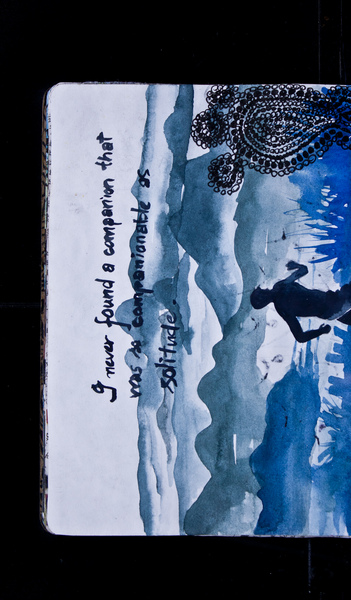 I never found a companion that
was so companionable as
solitude.